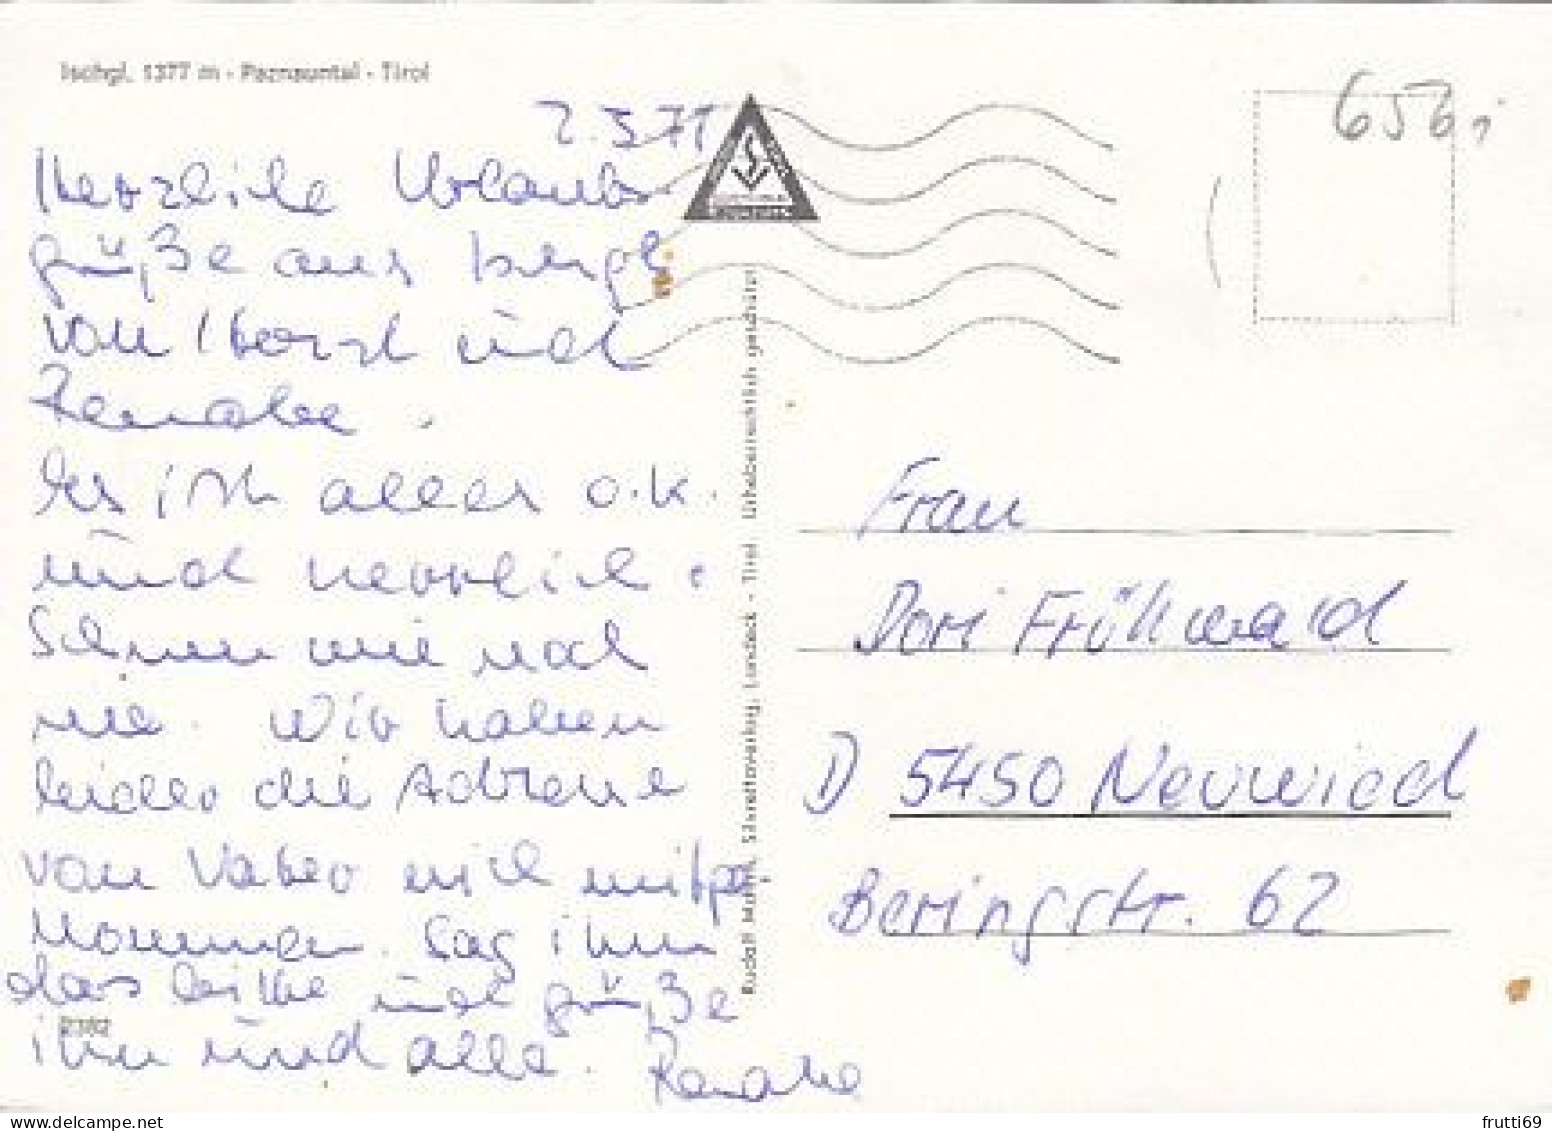 Ischgl, 1377 m - Paznauntal - Tirol
2.3.71
656
Herzliche Urlaubs
grüße aus Ischgl
von Horst und
Renate.
Es ist alles o.k.
und herrlich.
Schnee wie noch
nie. Wir haben
leider die Adresse
von Vater nich mitge
nommen. Sag ihm
das bitte und grüße
ihn und alle. Renate
2382
Rudolf Mathis, Silvrettaverlag, Landeck - Tirol Urheberrechtlich geschützt
Frau
Dori Frühwald
D 5450 Neuwied
Beringstr. 62
frutti69